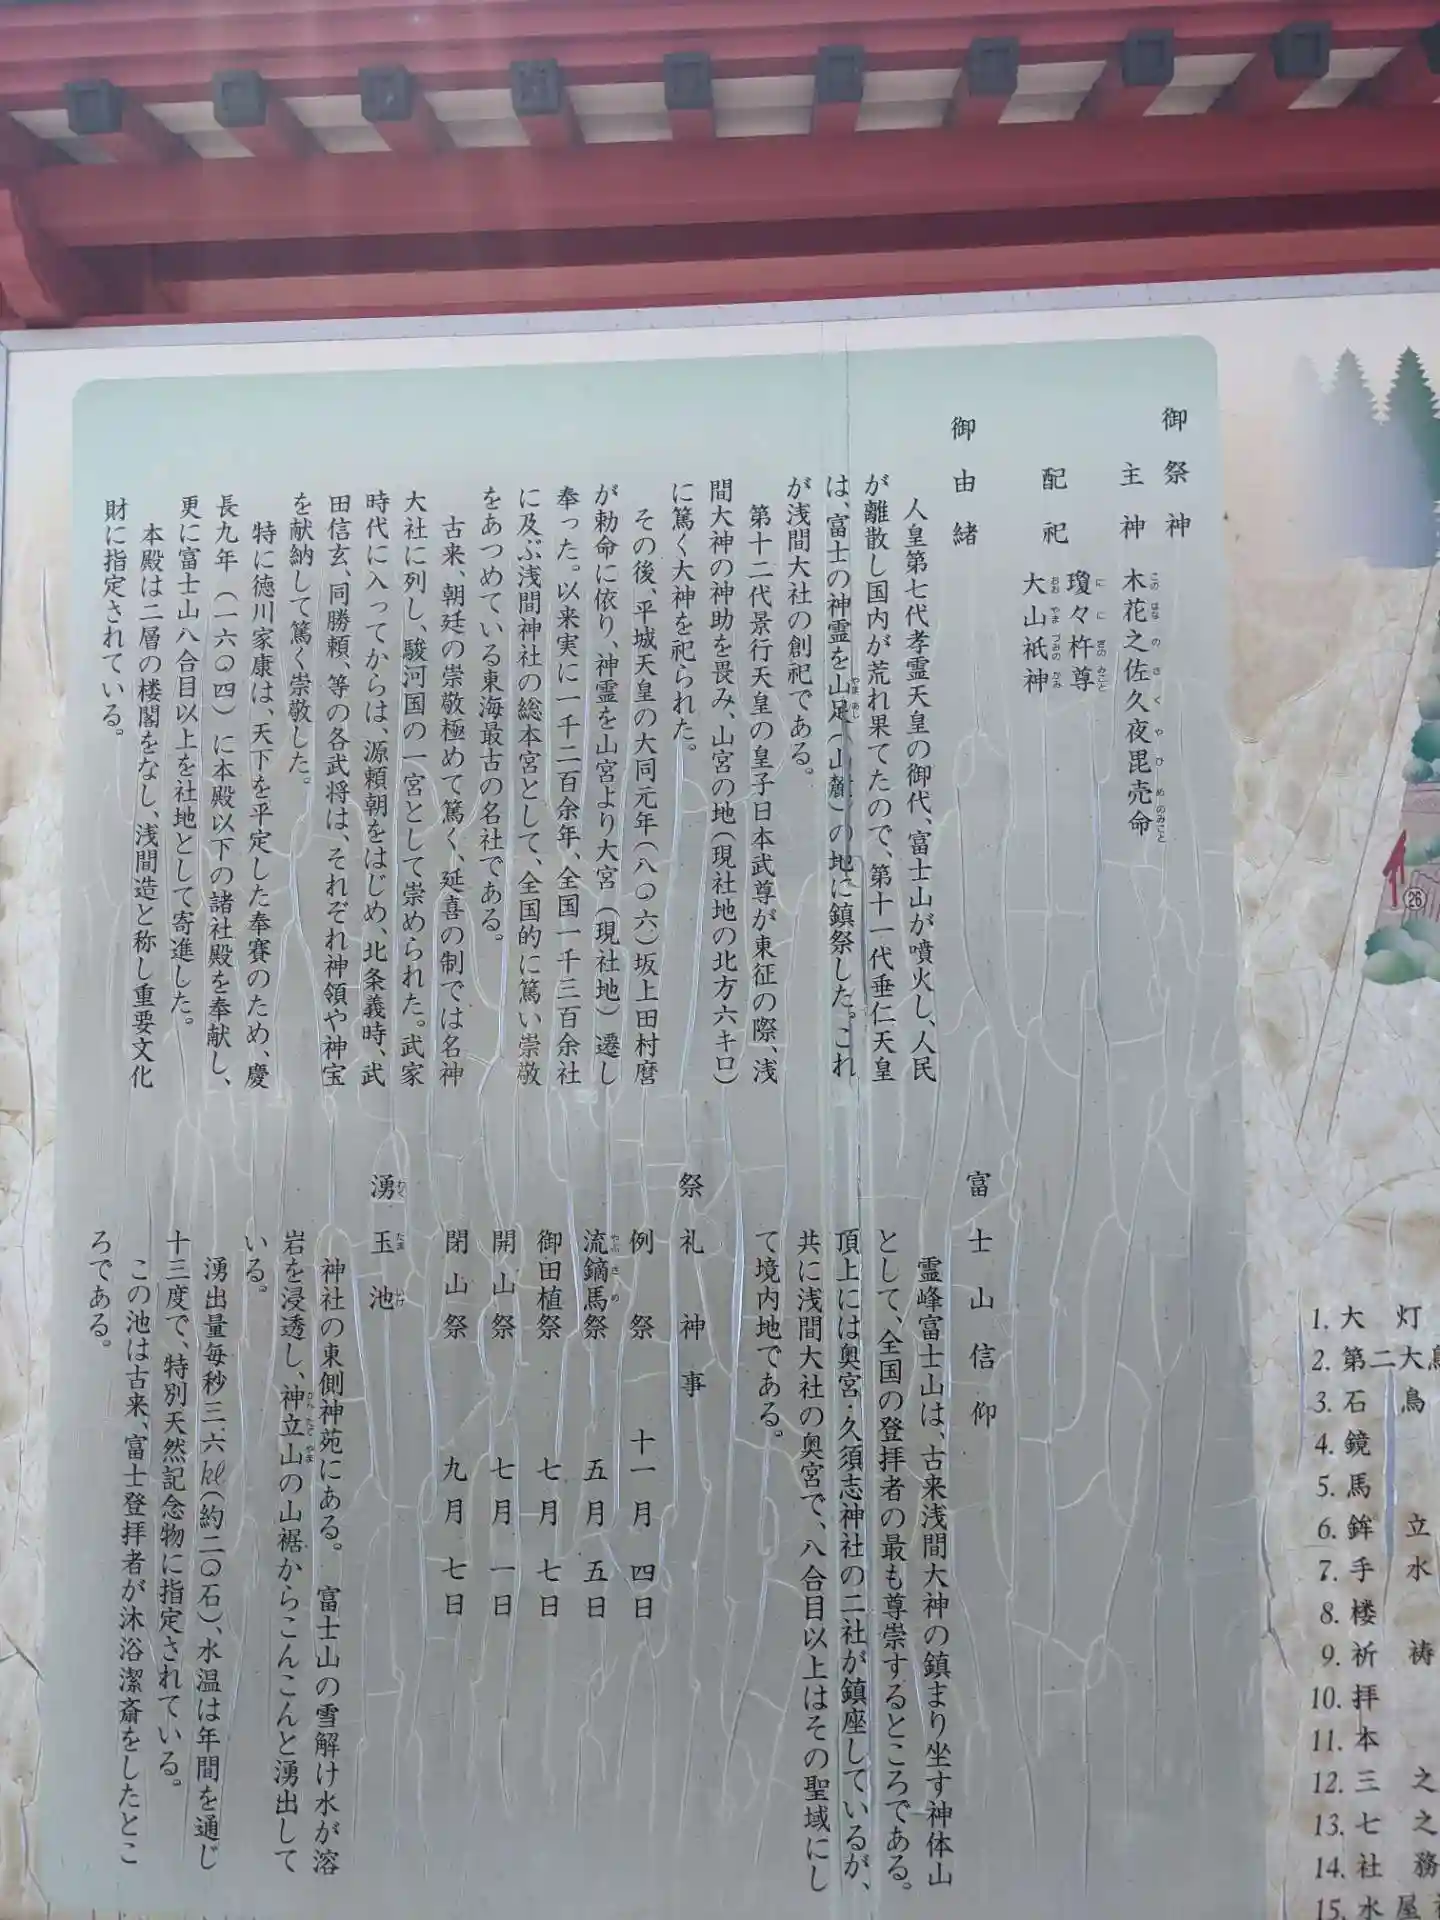 御祭神
主神 木花之佐久夜毘売命
このはなのさくやひめのみこと
配祀 瓊々杵尊
ににぎのみこと
大山祇神
おおやまづみのかみ
御由緒
人皇第七代孝霊天皇の御代、富士山が噴火し、人民
が離散し国内が荒れ果てたので、第十一代垂仁天皇
は、富士の神霊を山足(山麓)の地に鎮祭した。これ
やまあし
が浅間大社の創祀である。
第十二代景行天皇の皇子日本武尊が東征の際、浅
間大神の神助を畏み、山宮の地(現社地の北方六キロ)
に篤く大神を祀られた。
その後、平城天皇の大同元年(八〇六)坂上田村麿
が勅命に依り、神霊を山宮より大宮(現社地)遷し
奉った。以来実に一千二百余年、全国一千三百余社
に及ぶ浅間神社の総本宮として、全国的に篤い崇敬
をあつめている東海最古の名社である。
古来、朝廷の崇敬極めて篤く、延喜の制では名神
大社に列し、駿河国の一宮として崇められた。武家
時代に入ってからは、源頼朝をはじめ、北条義時、武
田信玄、同勝頼、等の各武将は、それぞれ神領や神宝
を献納して篤く崇敬した。
特に徳川家康は、天下を平定した奉賽のため、慶
長九年(一六〇四)に本殿以下の諸社殿を奉献し、
更に富士山八合目以上を社地として寄進した。
本殿は二層の楼閣をなし、浅間造と称し重要文化
財に指定されている。
富士山信仰
霊峰富士山は、古来浅間大神の鎮まり坐す神体山
として、全国の登拝者の最も尊崇するところである。
頂上には奥宮・久須志神社の二社が鎮座しているが、
共に浅間大社の奥宮で、八合目以上はその聖域にし
て境内地である。
祭礼神事
例祭 十一月四日
流鏑馬祭 五月五日
やぶさめ
御田植祭 七月七日
開山祭 七月一日
閉山祭 九月七日
湧玉池
わくたまいけ
神社の東側神苑にある。富士山の雪解け水が溶
岩を浸透し、神立山の山裾からこんこんと湧出して
かんだちやま
いる。
湧出量毎秒三・六kl(約二〇石)、水温は年間を通じ
十三度で、特別天然記念物に指定されている。
この池は古来、富士登拝者が沐浴潔斎をしたとこ
ろである。
26
1. 大 灯
2. 第二大鳥
3. 石 鳥
4. 鏡
5. 馬
6. 鉾 立
7. 手 水
8. 楼
9. 祈 祷
10. 拝
11. 本
12. 三 之
13. 七 之
14. 社 務
15. 水屋